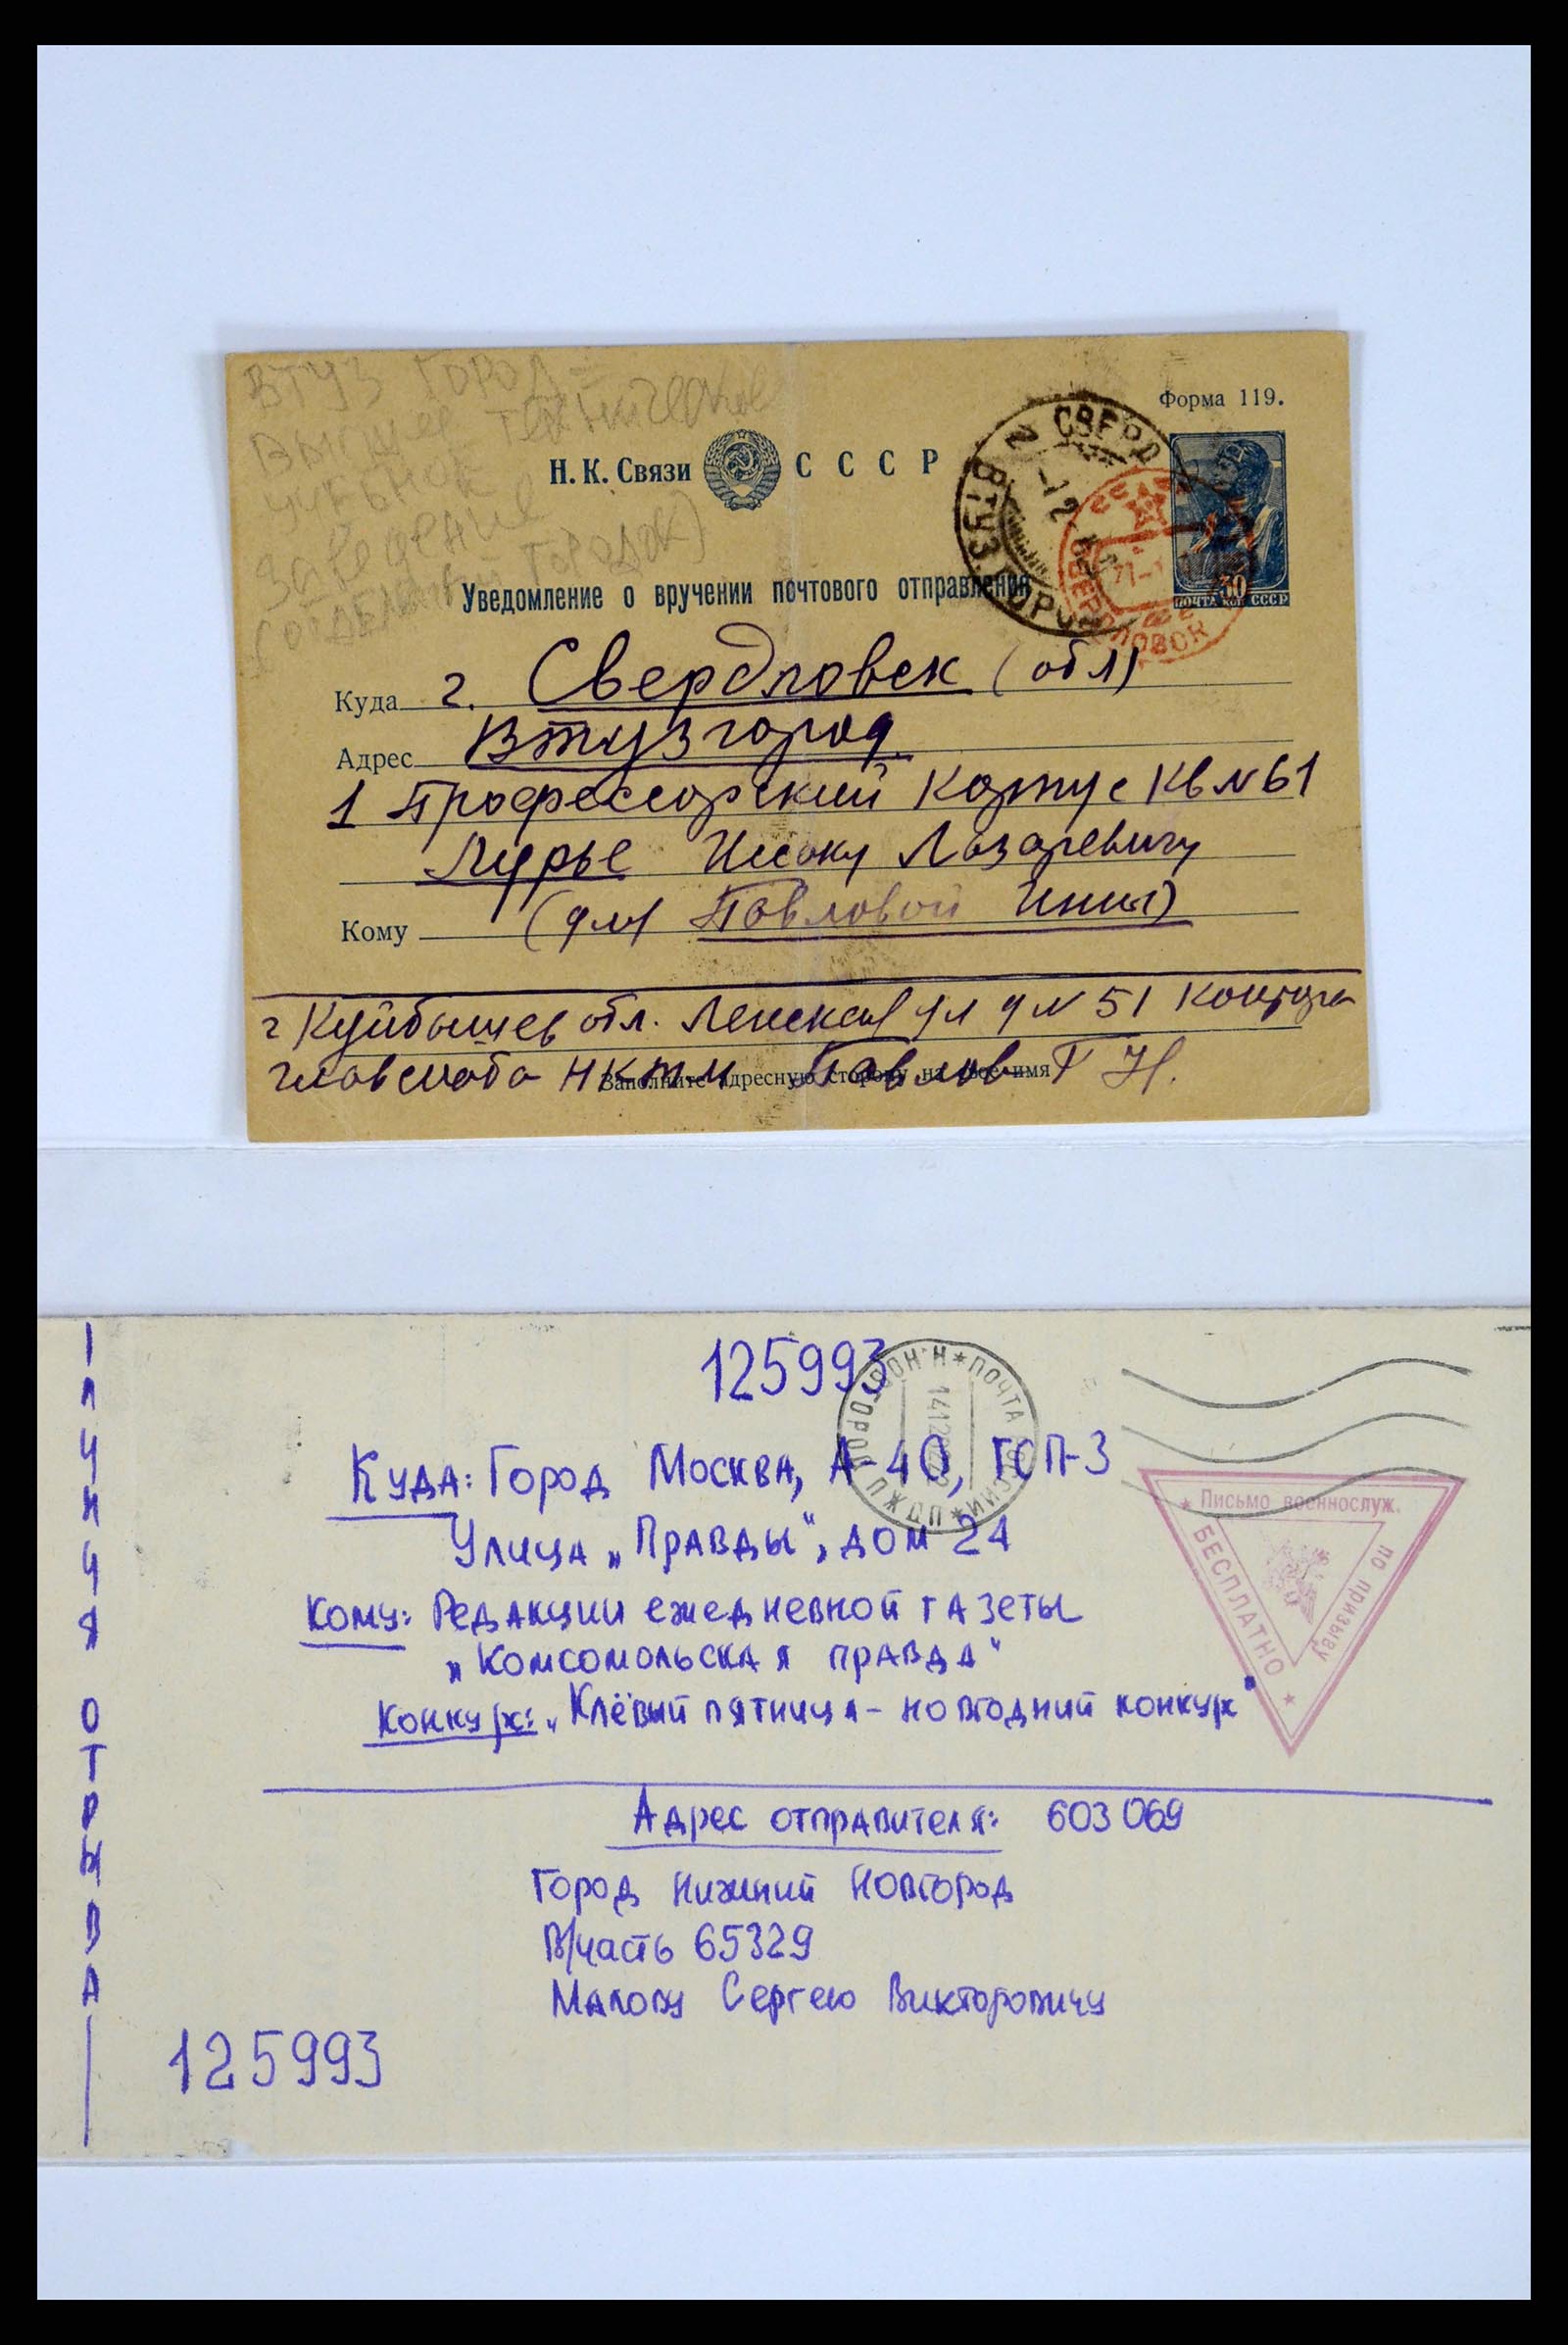 ВТУЗ ГОРОД -
ВЫСШЕЕ ТЕХНИЧЕСКОЕ
УЧЕБНОЕ
ЗАВЕДЕНИЕ
ГОРОДОК)
Форма 119.
Н. К. Связи СССР
СВЕРД
ВТУЗГОРОД
СВЕРДЛОВСК
30
ПОЧТА СССР
Уведомление о вручении почтового отправления
Куда г. Свердловск (обл)
Адрес Втузгород
1 Профессорский Корпус Кв №61
Лурье Исааку Лазаревичу
Кому (для Павловой Инны)
г Куйбышев обл. Ленская ул д № 51 Контора
Главснаба НКТМ Павлов Г Н.
Заполните адресную сторону на свое имя
125993
Н.НОВГОРОД *ПОЧТА РОССИИ* ПЖДП
Куда: Город Москва, А-40, ГСП-3
Улица „Правды“, дом 24
Кому: Редакции ежедневной газеты
„Комсомольская правда“
Конкурс: „Клёвый пятница - новгодний конкурс“
Письмо военнослуж.
по призыву
БЕСПЛАТНО
Адрес отправителя: 603069
Город Нижний Новгород
В/часть 65329
Малову Сергею Викторовичу
ЛИНИЯ ОТРЫВА
125993